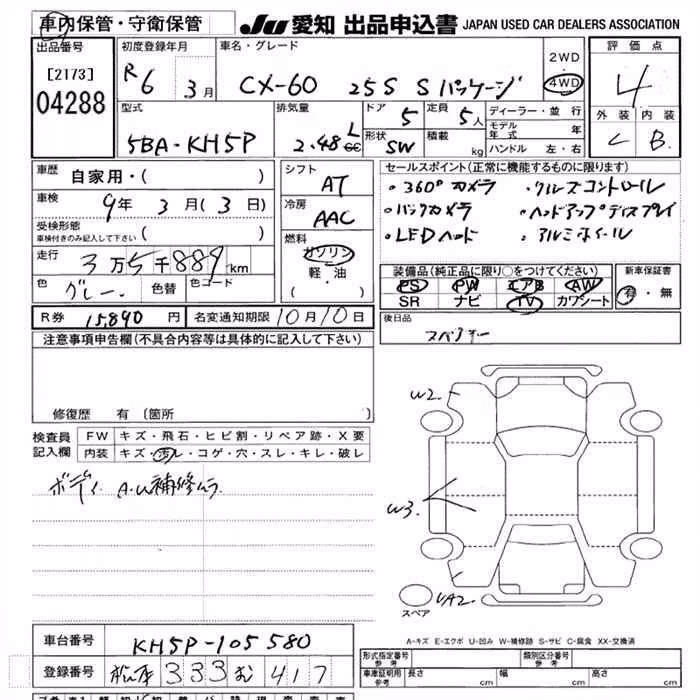 車内保管・守衛保管
JU 愛知 出品申込書 JAPAN USED CAR DEALERS ASSOCIATION
出品番号 [2173] 04288
初度登録年月 R6年 3月
車名・グレード CX-60 25S Sパッケージ
2WD 4WD
評価点 4
外装 C 内装 B
型式 5BA-KH5P
排気量 2.48 L cc
ドア 5 定員 5人
形状 SW 積載 kg
ディーラー・並行
モデル年式 年
ハンドル 左・右
車歴 自家用・( )
車検 9年 3月(3日)
受検形態 車検付きのみ記入して下さい ( )
走行 3万5千889km
色 グレー 色替 色コード
シフト AT
冷房 AAC
燃料 ガソリン 軽・油 ・( )
セールスポイント(正常に機能するものに限ります)
・360°カメラ ・クルーズコントロール
・バックカメラ ・ヘッドアップディスプレイ
・LEDヘッド ・アルミホイール
装備品(純正品に限り○をつけてください)
PS PW エアB AW
SR ナビ TV カワシート
新車保証書 有・無
R券 15,890円 名変通知期限 10月10日
後日品
注意事項申告欄(不具合内容等は具体的に記入して下さい)
修復歴 有 〔箇所
検査員記入欄
FW キズ・飛石・ヒビ割・リペア跡・X要
内装 キズ・汚レ・コゲ・穴・スレ・キレ・破レ
ボディ A.W補修ムラ
W2
W3
スペア
A-キズ E-エクボ U-凹み W-補修跡 S-サビ C-腐食 XX-交換済
車台番号 KH5P-105580
登録番号 333 む 417
形式指定番号 参考 類別区分番号 参考
車庫証明用 参考 長さ cm 幅 cm 高さ cm